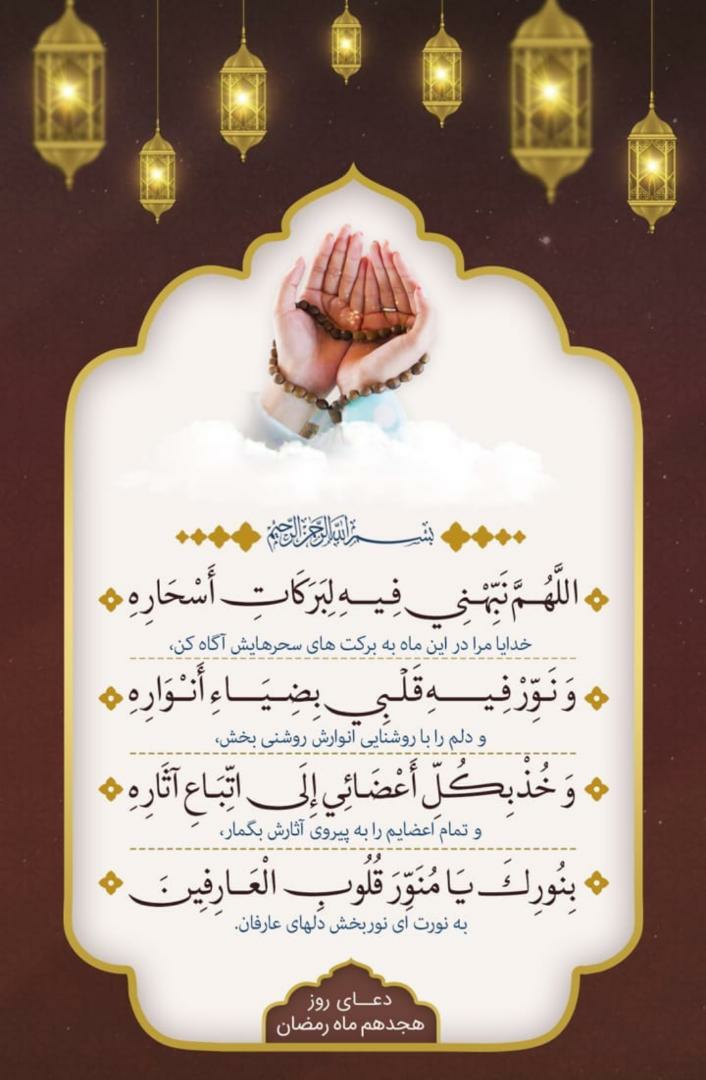 بسم الله الرحمن الرحیم
اللَّهُمَّ نَبِّهْنِي فِيهِ لِبَرَكَاتِ أَسْحَارِهِ
خدایا مرا در این ماه به برکت های سحرهایش آگاه کن،
وَ نَوِّرْ فِيهِ قَلْبِي بِضِيَاءِ أَنْوَارِهِ
و دلم را با روشنایی انوارش روشنی بخش،
وَ خُذْ بِكُلِّ أَعْضَائِي إِلَى اتِّبَاعِ آثَارِهِ
و تمام اعضایم را به پیروی آثارش بگمار،
بِنُورِكَ يَا مُنَوِّرَ قُلُوبِ الْعَارِفِينَ
به نورت ای نوربخش دلهای عارفان.
دعای روز
هجدهم ماه رمضان